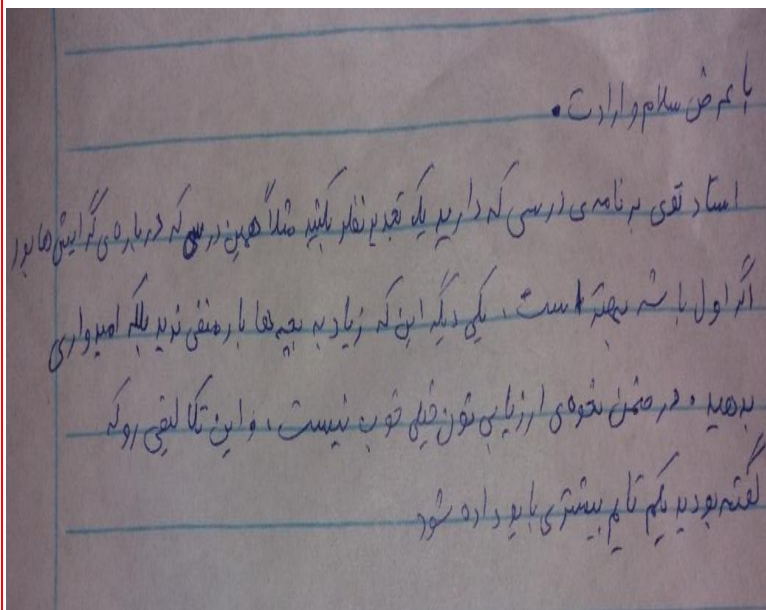 با عرض سلام و ارادت.
استاد توی برنامه ی درسی که دارید یک تجدید نظر بکنید مثلاً همین درسی که درباره ی گرایش ها بود
اگر اول باشه بهتر است، یکی دیگه این که زیاد به بچه ها بار منفی ندید بلکه امیدواری
بدهید. در ضمن نحوه ی ارزیابی تون خیلی خوب نیست، و این تکالیفی رو که
گفته بودید یکم تایم بیشتری باید داده شود